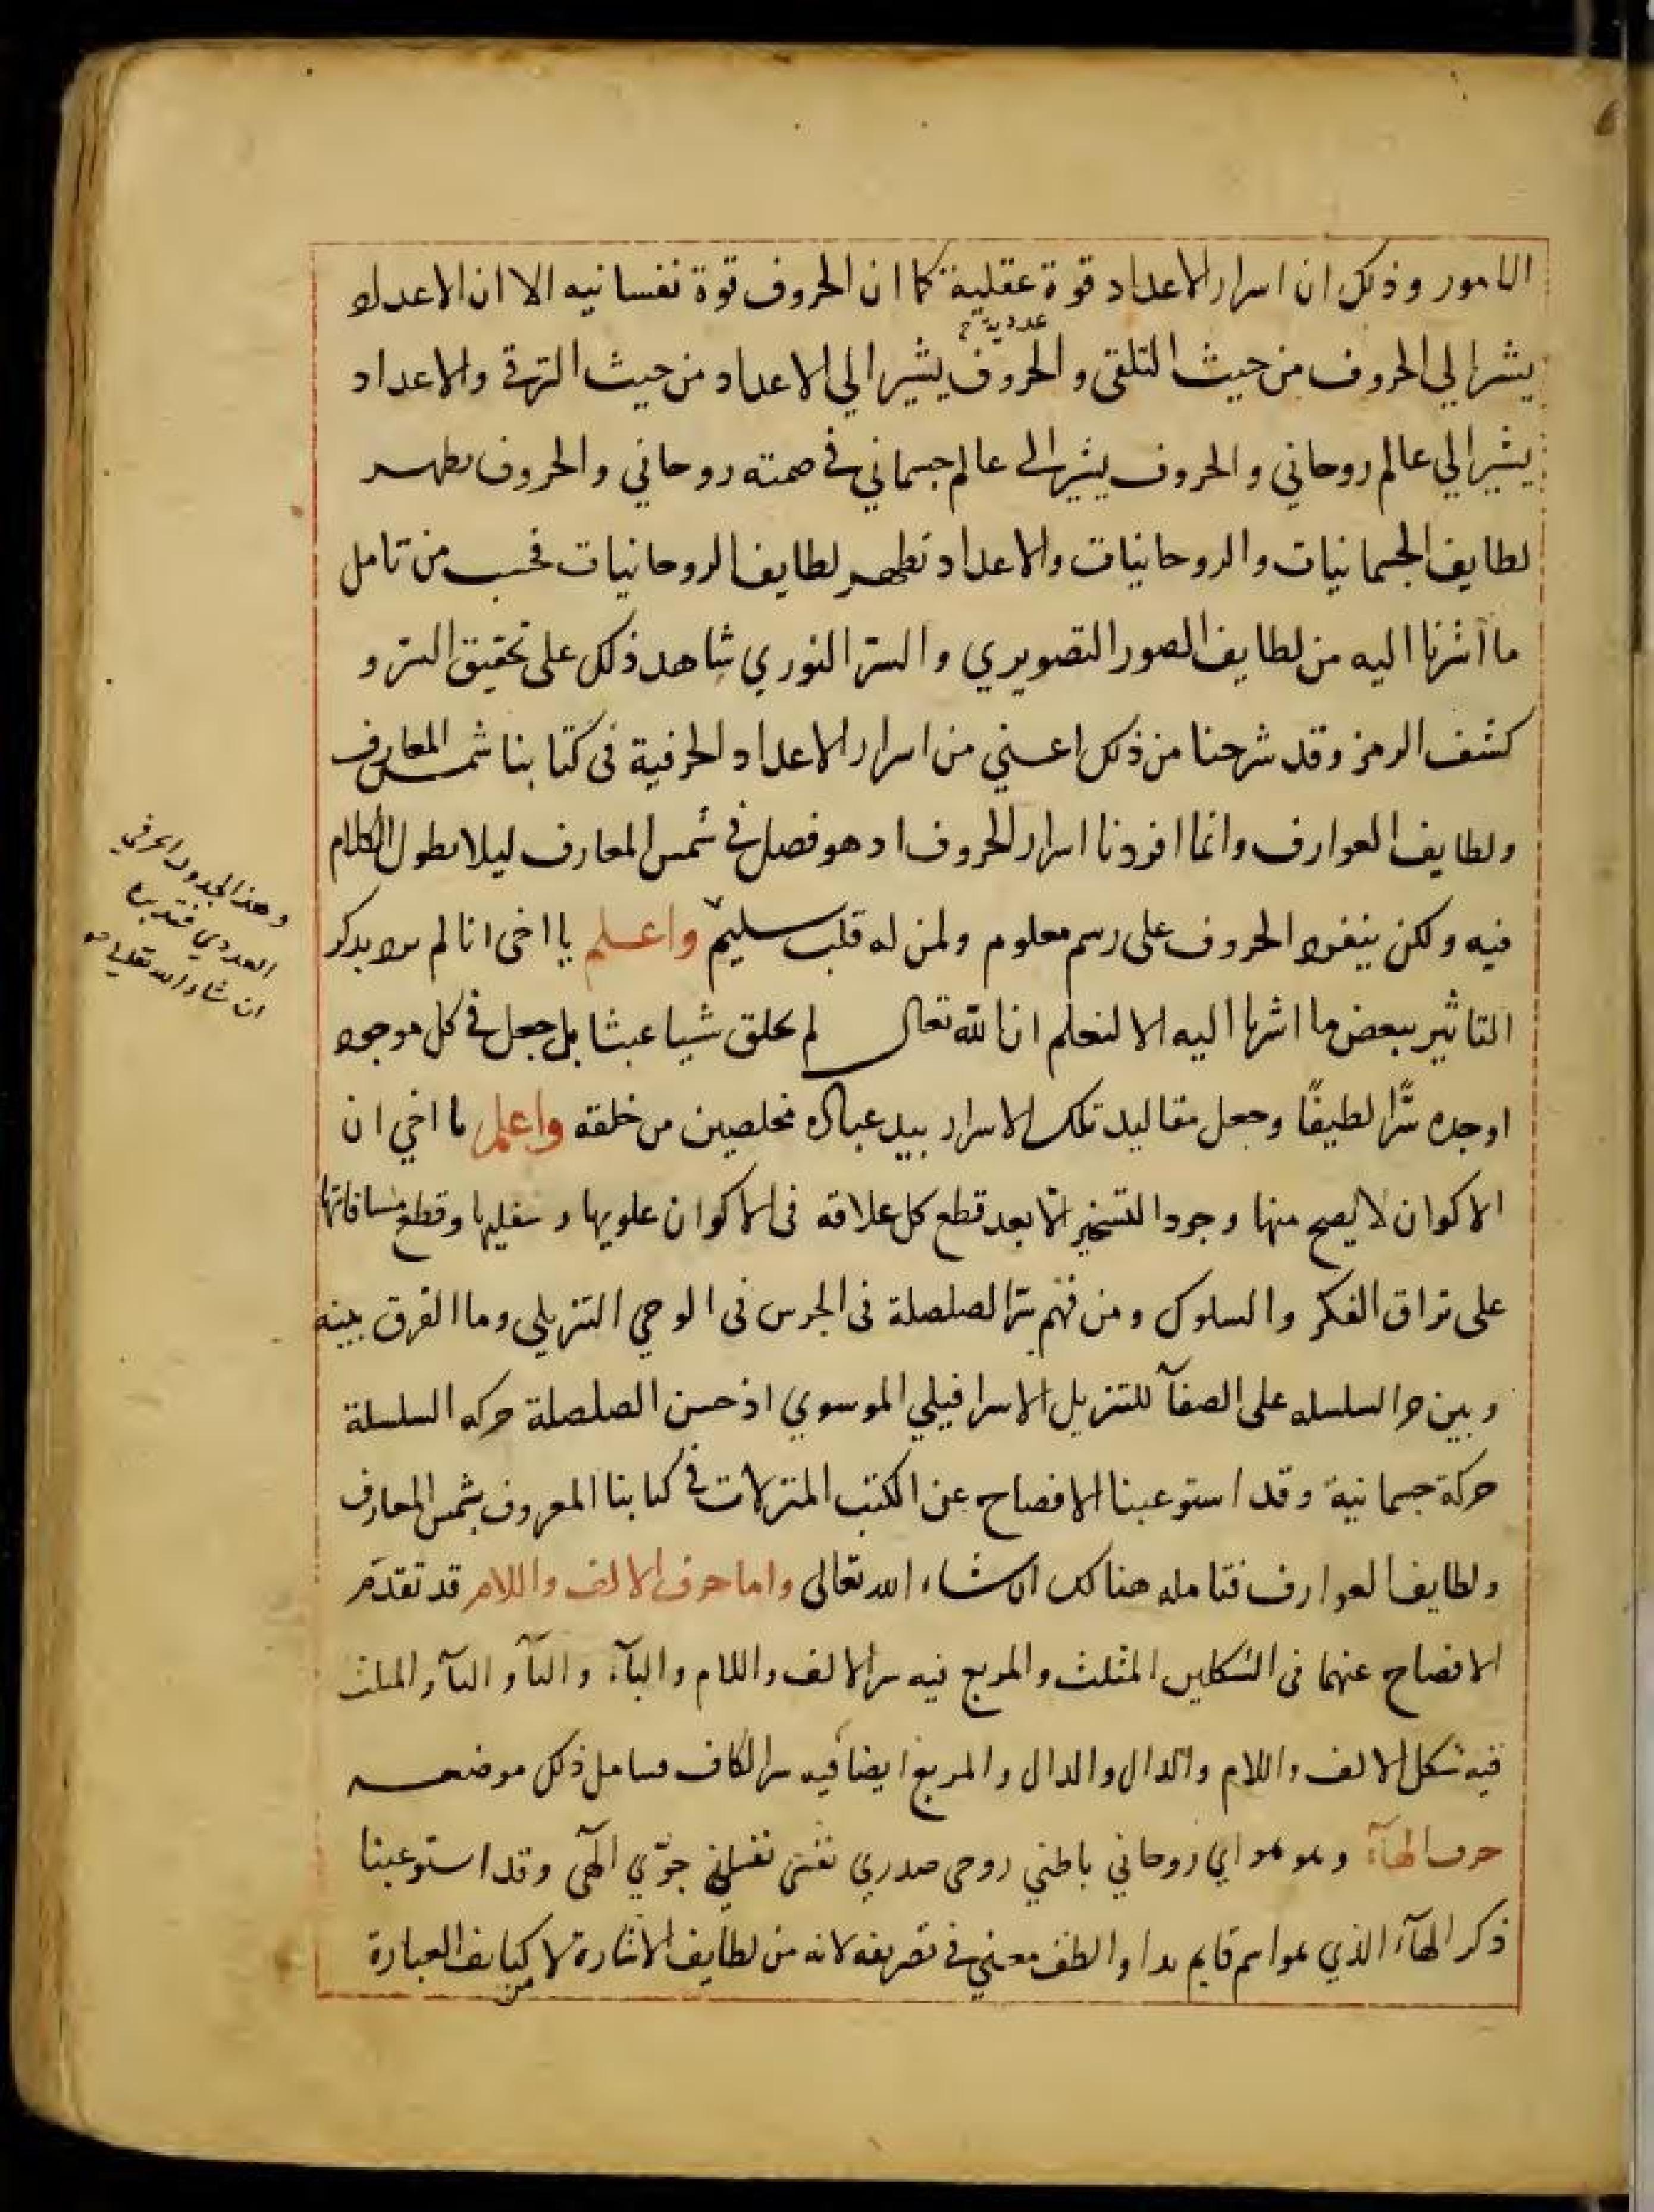 الامور وذلك ان اسرار الاعداد قوة عقلية كما ان الحروف قوة نفسانيه الا ان الاعداد
عددية
يشير الي الحروف من حيث التلقى والحروف يشير الي الاعداد من حيث الترقي والاعداد
يشير الي عالم روحاني والحروف يشير الى عالم جسماني في صمته روحاني والحروف تطهر
لطايف الجسمانيات والروحانيات والاعداد تظهر لطايف الروحانيات فحسب من تامل
ما اشرنا اليه من لطايف الصور التصويري والستر النوري شاهد ذلك على تحقيق الستر و
كشف الرمز وقد شرحنا من ذلك اعني من اسرار الاعداد الحرفية فى كتابنا شمس المعارف
ولطايف العوارف وانما افردنا اسرار الحروف اد هو فصل في شمس المعارف ليلا يطول الكلام
فيه ولكن الحروف على رسم معلوم ولمن له قلب سليم واعلم يا اخى انا لم
التاثير ببعض ما اشرنا اليه الا لنعلم ان الله تعالى لم يخلق شيا عبثا بل جعل في كل موجود
اوجده سرًّا لطيفًا وجعل مقاليد تلك الاسرار بيد عباده مخلصين من خلقه واعلم يا اخي ان
الاكوان لا يصح منها وجود التسخير الا بعد قطع كل علاقه فى الاكوان علويها وسفليها وقطع مسافاتها
على تراق الفكر والسلوك ومن فهم سر الصلصلة فى الجرس فى الوحي التنزيلي وما الفرق بينه
وبين جر السلسله على الصفآ للتنزيل الاسرافيلي الموسوي اذ حسن الصلصلة حركه السلسلة
حركة جسمانية وقد استوعبنا الافصاح عن الكتب المنزلات في كتابنا المعروف بشمس المعارف
ولطايف العوارف فتامله هناك ان شاء الله تعالى واما حرف الالف واللام قد تقدم
الافصاح عنهما فى الشكلين المثلث والمربع فيه سر الالف واللام والبآء والتآ والثآ والمثلث
فيه شكل الالف واللام والدال والذال والمربع ايضا فيه سر الكاف فتامل ذلك موضعه
حرف الهآء وهو هواي روحاني باطني روحى صدري نفسى جوّي الهى وقد استوعبنا
ذكر الهآء الذي هو اسم قايم بدا والطف معني في تصريفه لانه من لطايف الاشارة لا من كثايف العبارة
وهذا الجدول الحرفي
العددي فتدبره
ان شاء الله تعالي